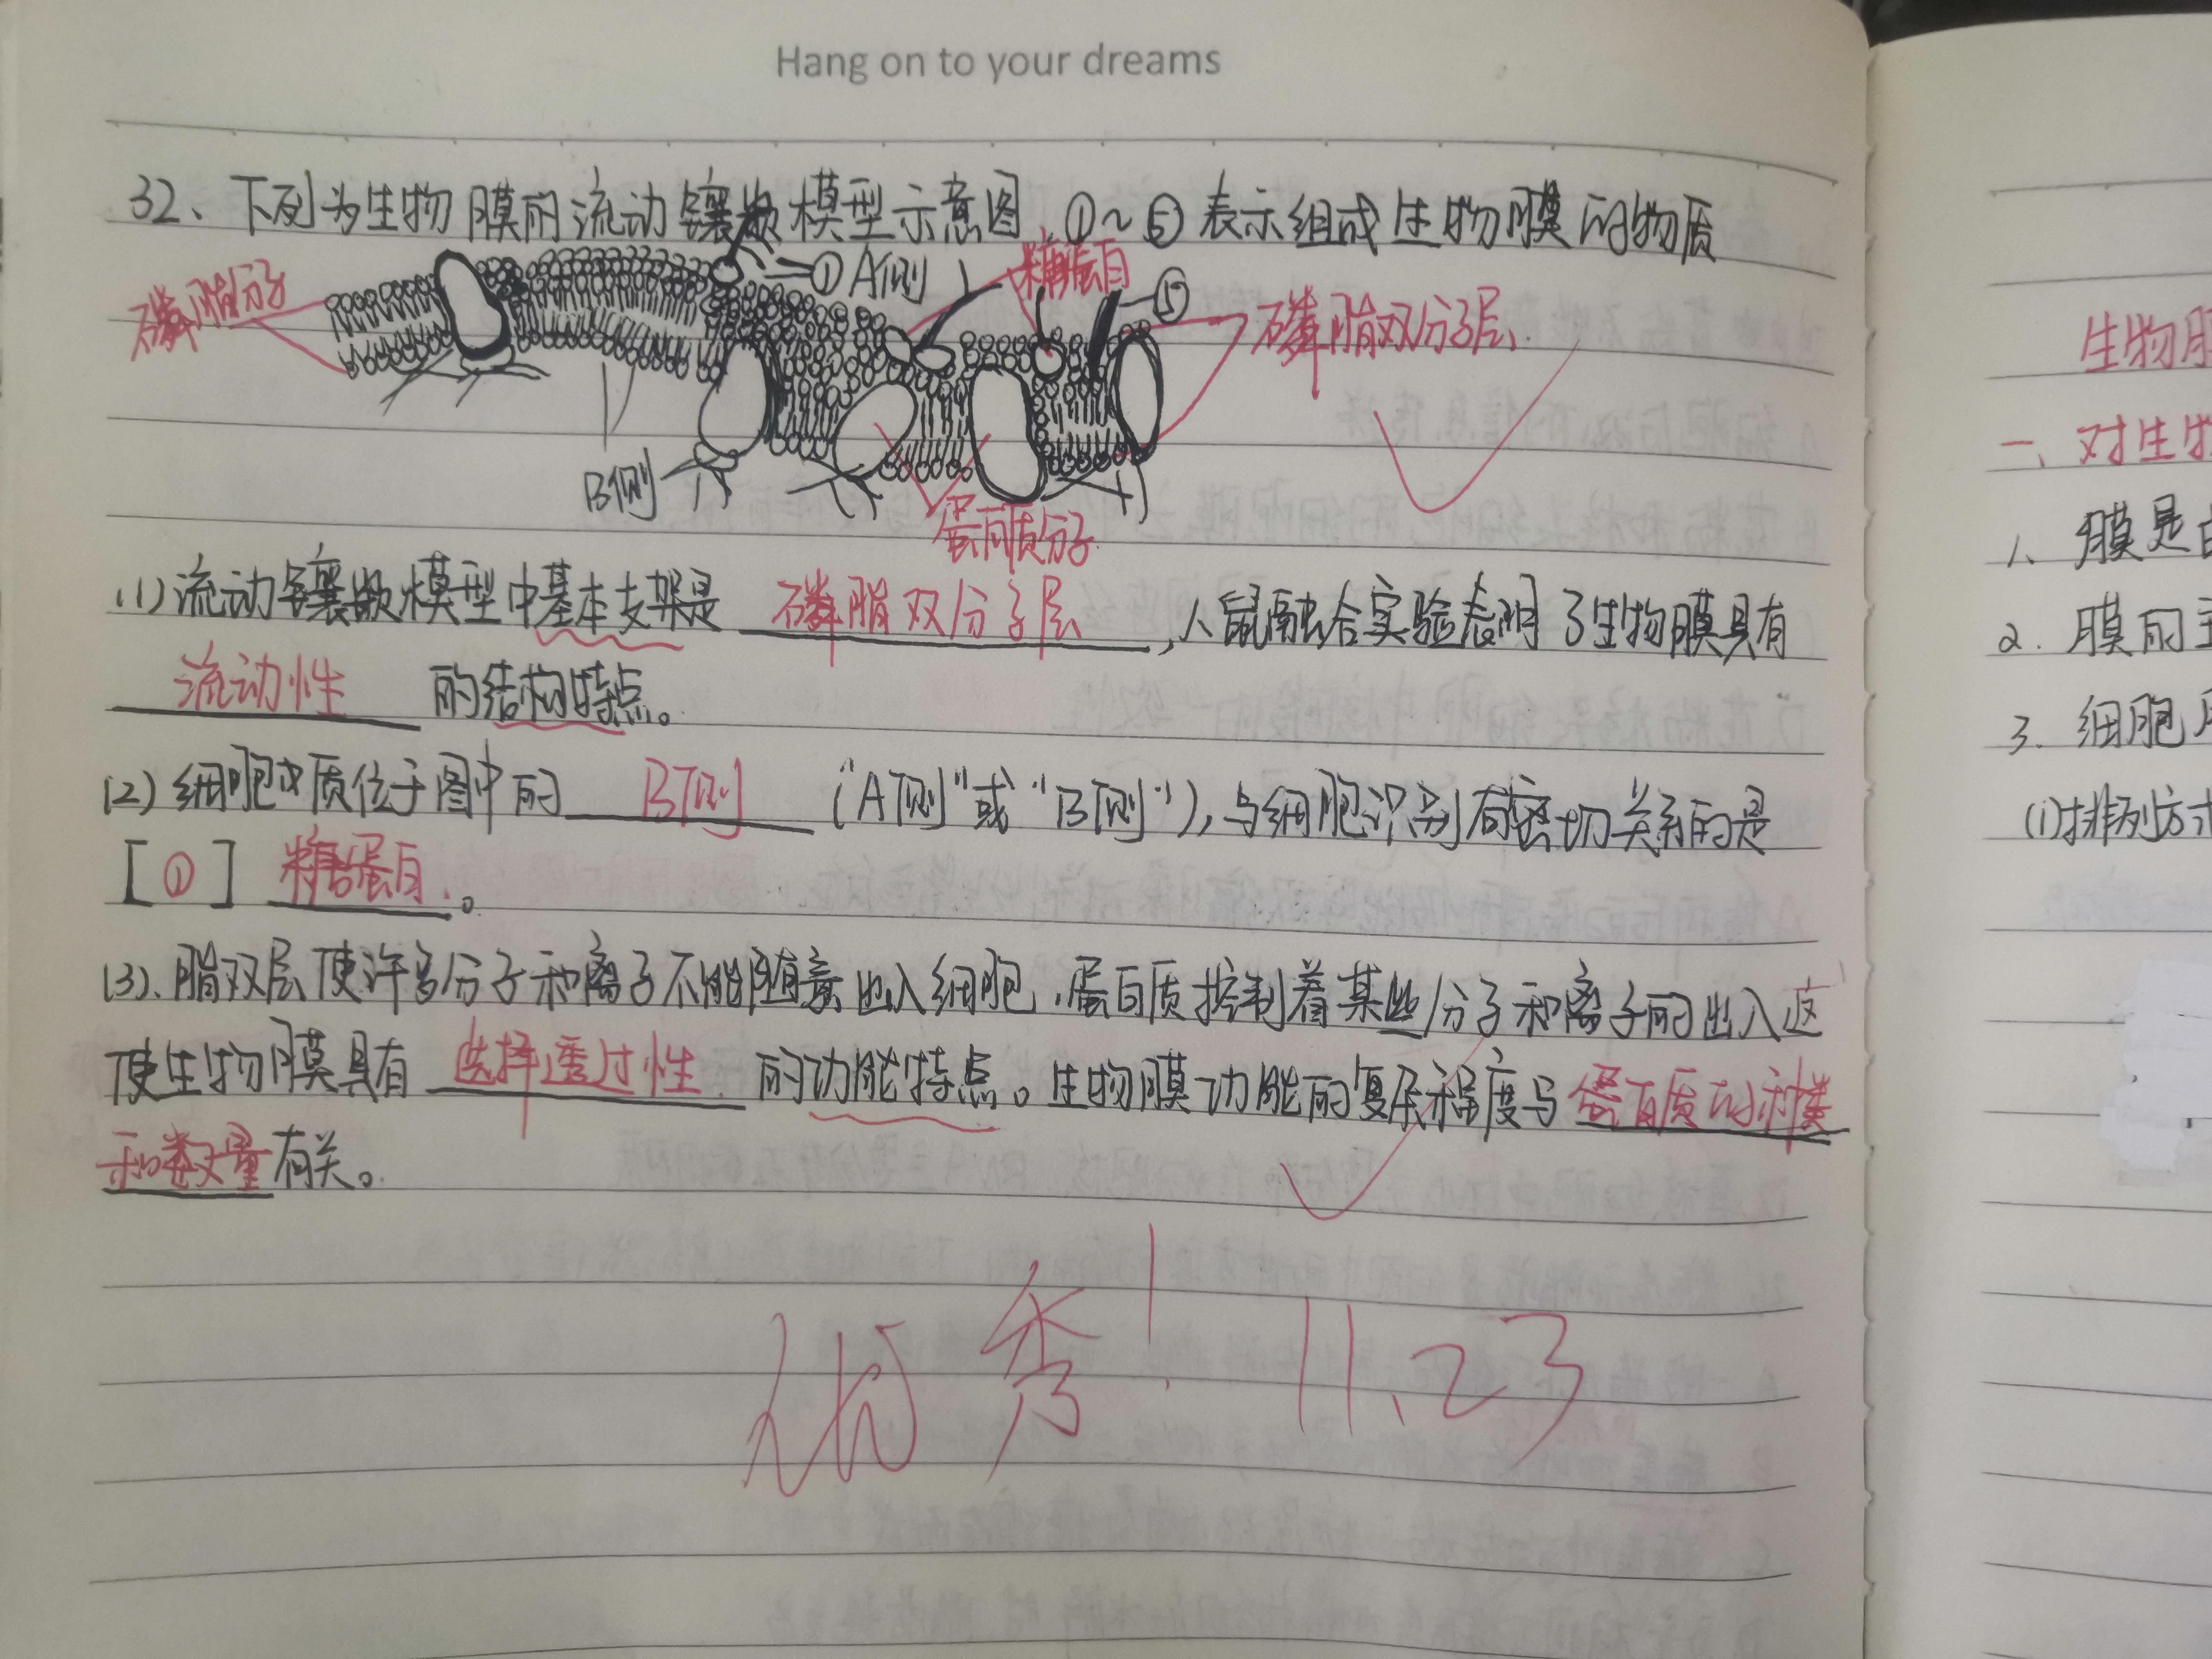 Hang on to your dreams
32、下列为生物膜的流动镶嵌模型示意图,①~⑤表示组成生物膜的物质
磷脂分子
① A侧
糖蛋白
⑤
磷脂双分子层
B侧
蛋白质分子
(1)流动镶嵌模型中基本支架是 磷脂双分子层 ,人鼠融合实验表明了生物膜具有
流动性 的结构特点。
(2)细胞质位于图中的 B侧 ("A侧"或"B侧"),与细胞识别有密切关系的是
[ ① ] 糖蛋白 。
(3)、脂双层使许多分子和离子不能随意出入细胞,蛋白质控制着某些分子和离子的出入这
使生物膜具有 选择透过性 的功能特点。生物膜功能的复杂程度与 蛋白质的种类
和数量 有关。
优秀! 11.23
生物
一、对生物
1、膜是
2. 膜的
3. 细胞
(1)排列方